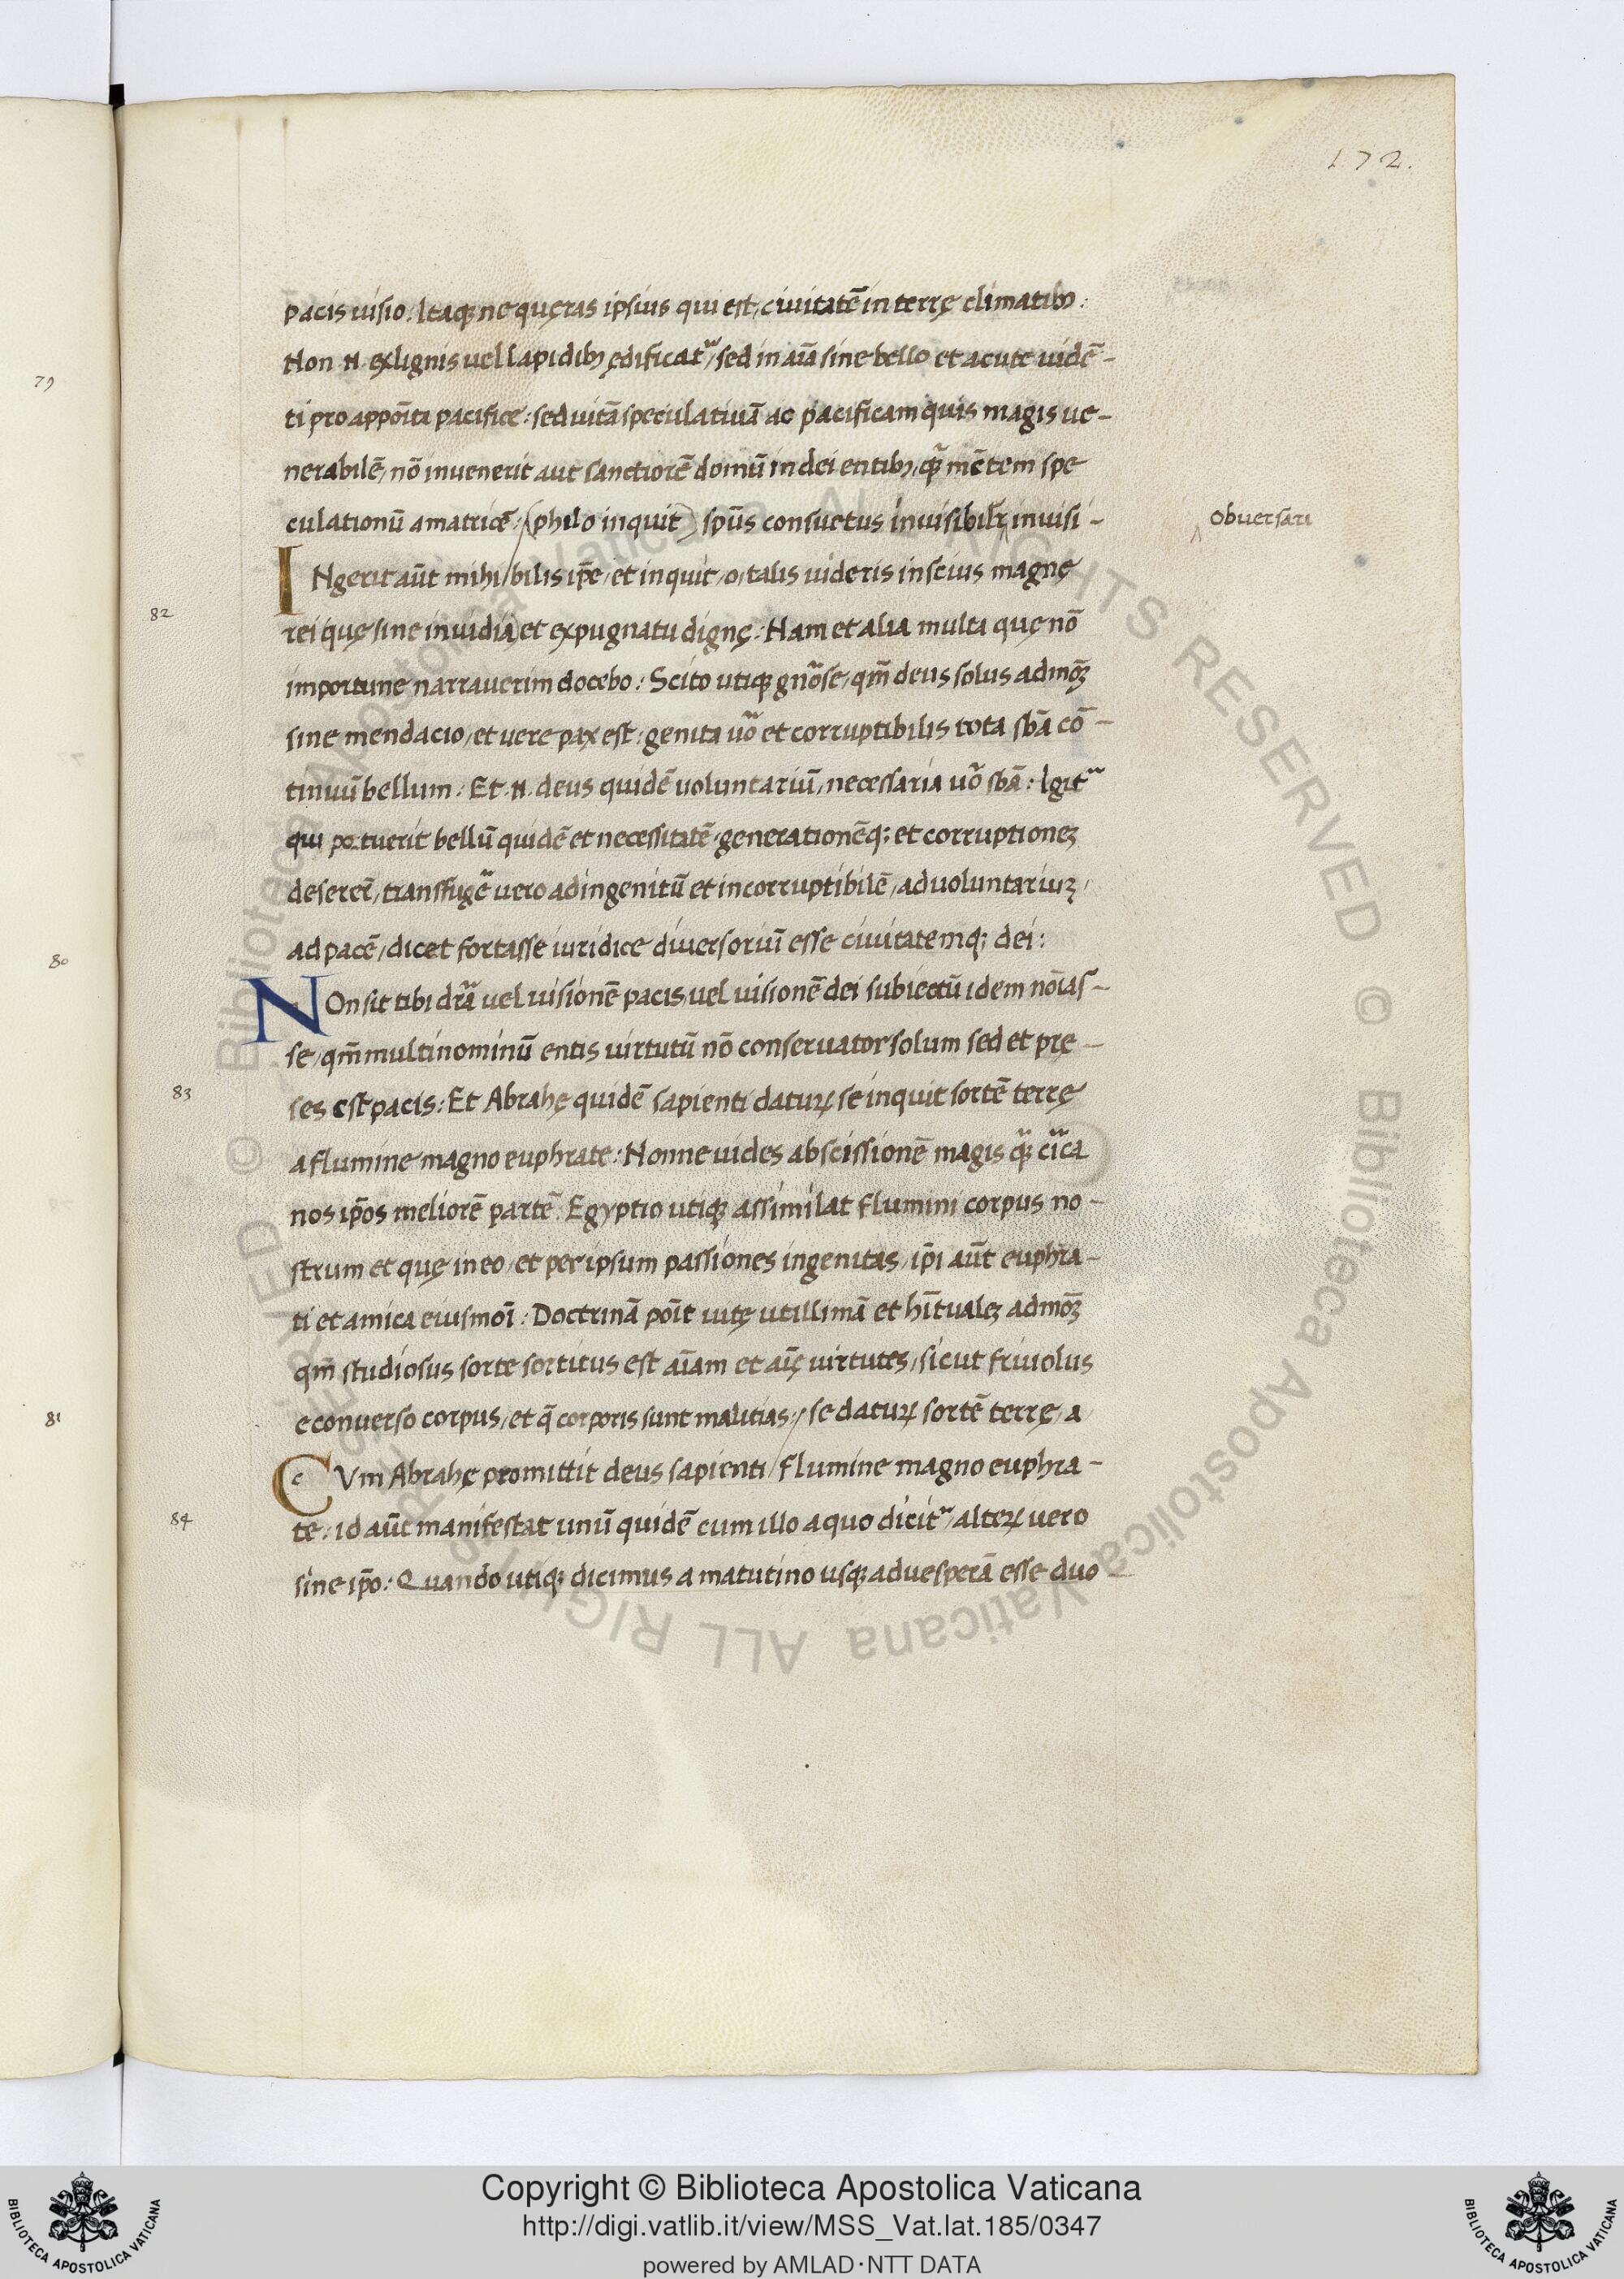 172.
pacis uisio: Itaqꝫ ne quęras ipsius qui est, ciuitatē in terrę climatibꝫ:
Non .n. ex lignis uel lapidibꝫ ędificatᷣ, sed in aīa sine bello et acute uidē-
ti pro appoīta pacifice: sed uitā speculatiuā ac pacificam quis magis ue-
nerabilē, nō inuenerit aut sanctiorē domū in dei entibꝫ, qꝫ̄ mētem spe
culationū amatricē: (philo inquit) spūs consuetus inuisibilr̄ inuisi-
Obuersari
INgerit aūt mihi/bilis ip̄e, et inquit, o, talis uideris inscius magnę
82
rei quę sine inuidia et expugnatu dignę: Nam et alia multa quę nō
importune narrauerim docebo: Scito utiqꝫ gn̄ose, qm̄ deus solus admōꝫ
sine mendacio, et uere pax est: genita uō et corruptibilis tota sb̄a cō-
tinuū bellum: Et .n. deus quidē uoluntariū, necessaria uō sb̄a: Igitᷣ
qui potuerit bellū quidē et necessitatē, generationēqꝫ et corruptioneꝫ
deserer̄, transfugē uero ad ingenitū et incorruptibilē, ad uoluntariuꝫ,
ad pacē, dicet fortasse iuridice diuersoriū esse ciuitatemqꝫ dei:
NOn sit tibi dr̄a uel uisionē pacis uel uisionē dei subiectū idem noīas-
se, qm̄ multinominū entis uirtutū nō conseruator solum sed et prę-
83
ses est pacis: Et Abrahę quidē sapienti daturꝫ se inquit sortē terrę
a flumine magno euphrate: Nonne uides abscissionē magis qꝫ̄ cīca
nos ip̄os meliorē partē: Egyptio utiqꝫ assimilat flumini corpus no-
strum et quę in eo, et per ipsum passiones ingenitas, ip̄i aūt euphra-
ti et amica eiusmoī: Doctrinā poīt uitę utillimā et hītualeꝫ admōꝫ
qm̄ studiosus sorte sortitus est aīam et aīę uirtutes, sicut friuolus
e conuerso corpus, et q̄ corporis sunt malitias:/ se daturꝫ sortē terrę, a
CVm Abrahę promittit deus sapienti/flumine magno euphra-
84
te: id aūt manifestat unū quidē cum illo a quo dicitᷣ, alterꝫ uero
sine ip̄o: Quando utiqꝫ dicimus a matutino usqꝫ ad uesperā esse duo
79
80
81
© Biblioteca Apostolica Vaticana ALL RIGHTS RESERVED © Biblioteca Apostolica Vaticana ALL RIGHTS RESERVED
Copyright © Biblioteca Apostolica Vaticana
http://digi.vatlib.it/view/MSS_Vat.lat.185/0347
powered by AMLAD·NTT DATA
BIBLIOTECA APOSTOLICA VATICANA
BIBLIOTECA APOSTOLICA VATICANA